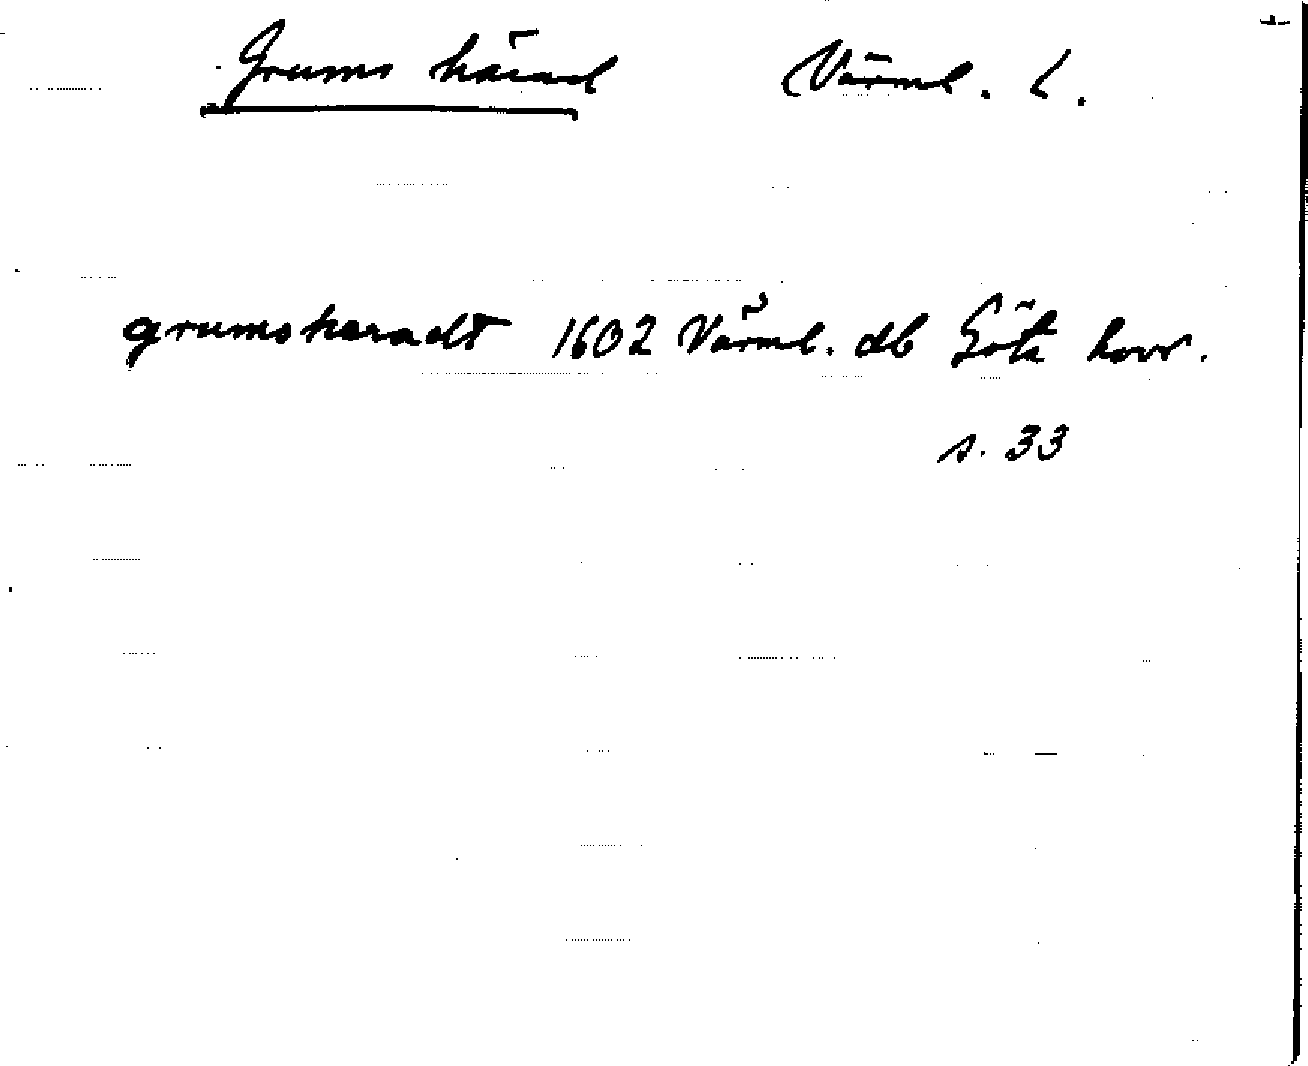 Grums härad Värml. L.
grumsharadt 1602 Värml. db Göta hovr.
s. 33